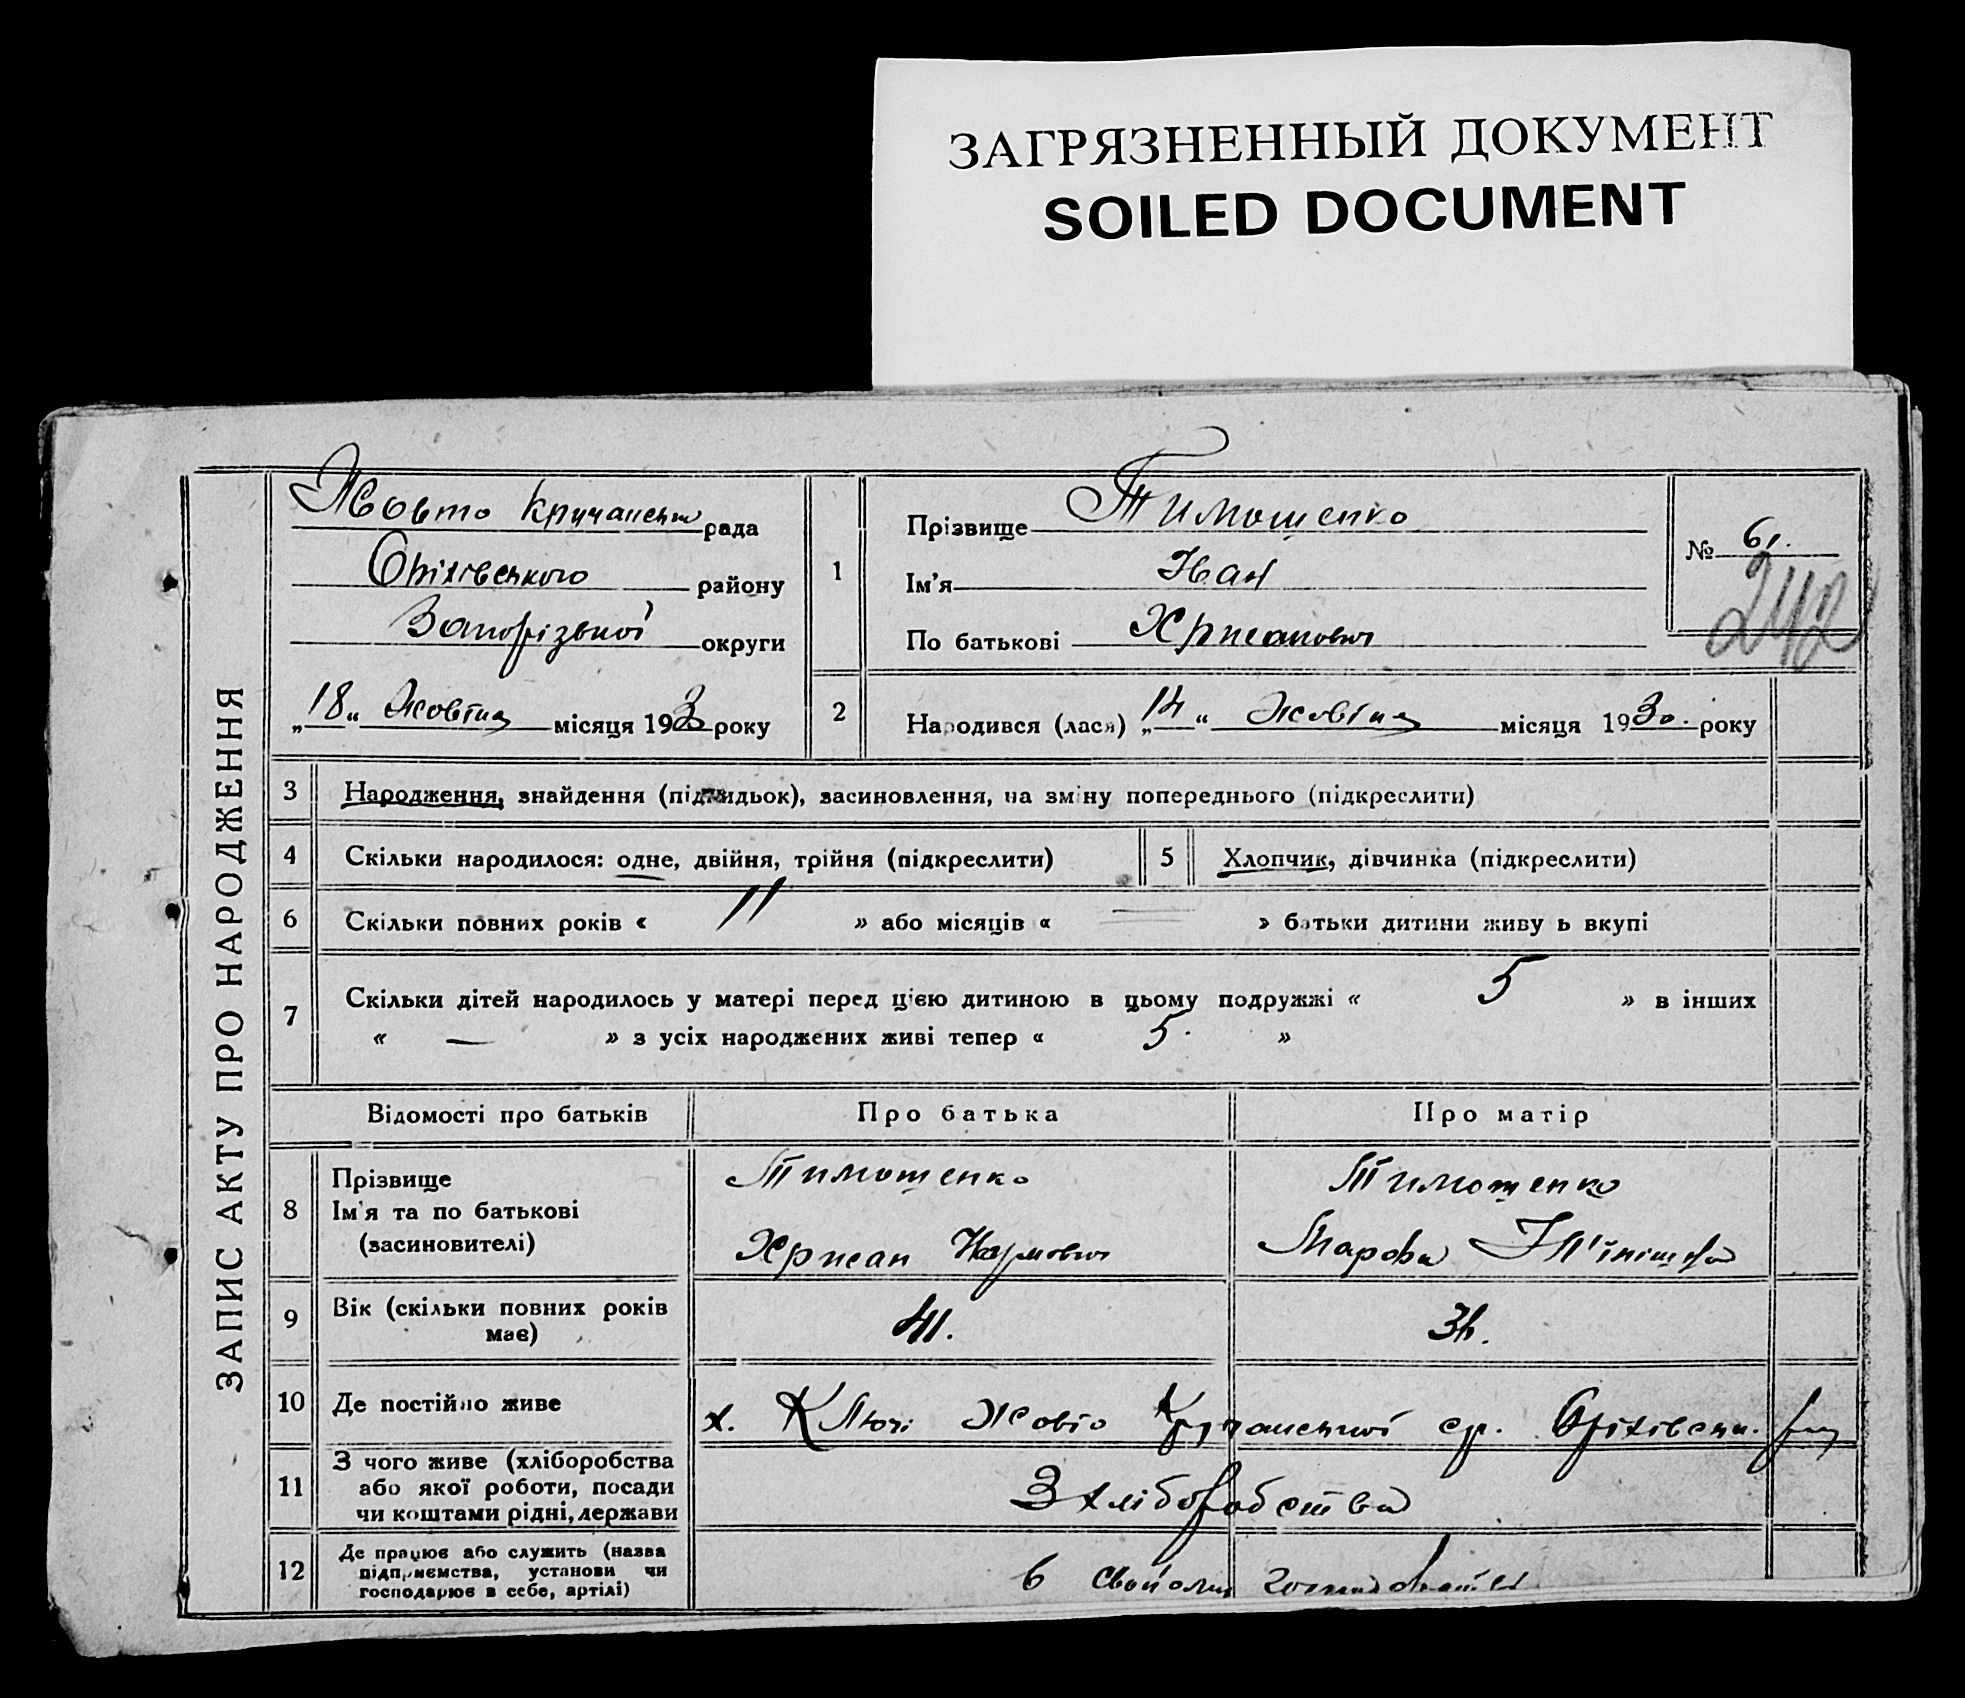 ЗАГРЯЗНЕННЫЙ ДОКУМЕНТ
SOILED DOCUMENT
ЗАПИС АКТУ ПРО НАРОДЖЕННЯ
Жовто Кручанська рада
Оріхівського району
Запорізької округи
„18“ Жовтня місяця 1930 року
1
Прізвище Тимошенко
Ім'я Іван
По батькові Хрисанович
№ 61.
242
2
Народився (лася) „14“ Жовтня місяця 1930. року
3 Народження, знайдення (підкидьок), засиновлення, на зміну попереднього (підкреслити)
4 Скільки народилося: одне, двійня, трійня (підкреслити)
5 Хлопчик, дівчинка (підкреслити)
6 Скільки повних років « 11 » або місяців « — » батьки дитини живу ь вкупі
7 Скільки дітей народилось у матері перед цією дитиною в цьому подружжі « 5 » в інших
« — » з усіх народжених живі тепер « 5. »
Відомості про батьків Про батька Про матір
8 Прізвище
Ім'я та по батькові
(засиновителі)
Тимошенко
Хрисан Наумович
Тимошенко
Марфа
9 Вік (скільки повних років
має)
41.
34.
10 Де постійно живе
х. Ключі Жовто Кручанської ср. Оріхівськ.
11 З чого живе (хліборобства
або якої роботи, посади
чи коштами рідні, держави
З хліборобства
12 Де працює або служить (назва
підприємства, установи чи
господарює в себе, артілі)
в свойому господарстві